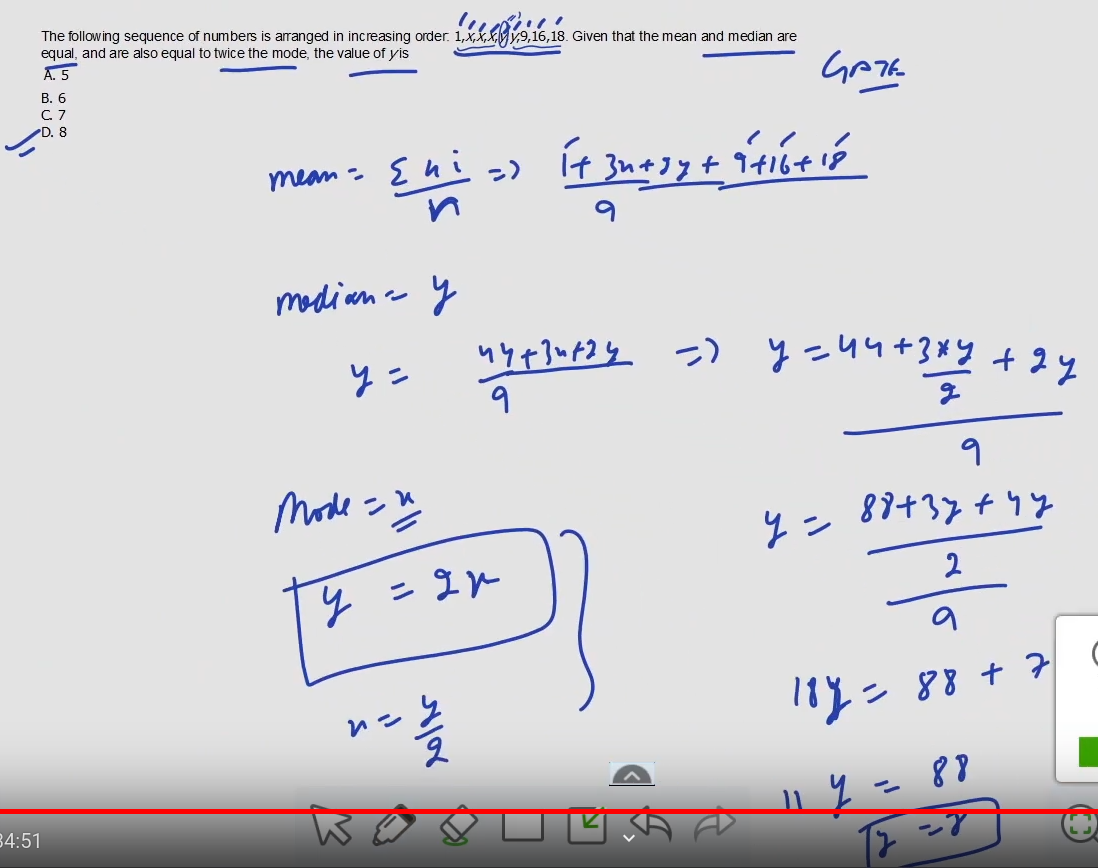 The following sequence of numbers is arranged in increasing order: 1,x,x,x,y,y,9,16,18. Given that the mean and median are
equal, and are also equal to twice the mode, the value of y is
A. 5
B. 6
C. 7
D. 8
GATE
mean = Σ xi / n => 1 + 3x + 2y + 9 + 16 + 18 / 9
median = y
y = 44 + 3x + 2y / 9 => y = 44 + 3*y/2 + 2y / 9
Mode = x
y = 88 + 3y + 4y / 2 / 9
y = 2x
18y = 88 + 7
x = y/2
11 y = 88
y = 8
34:51